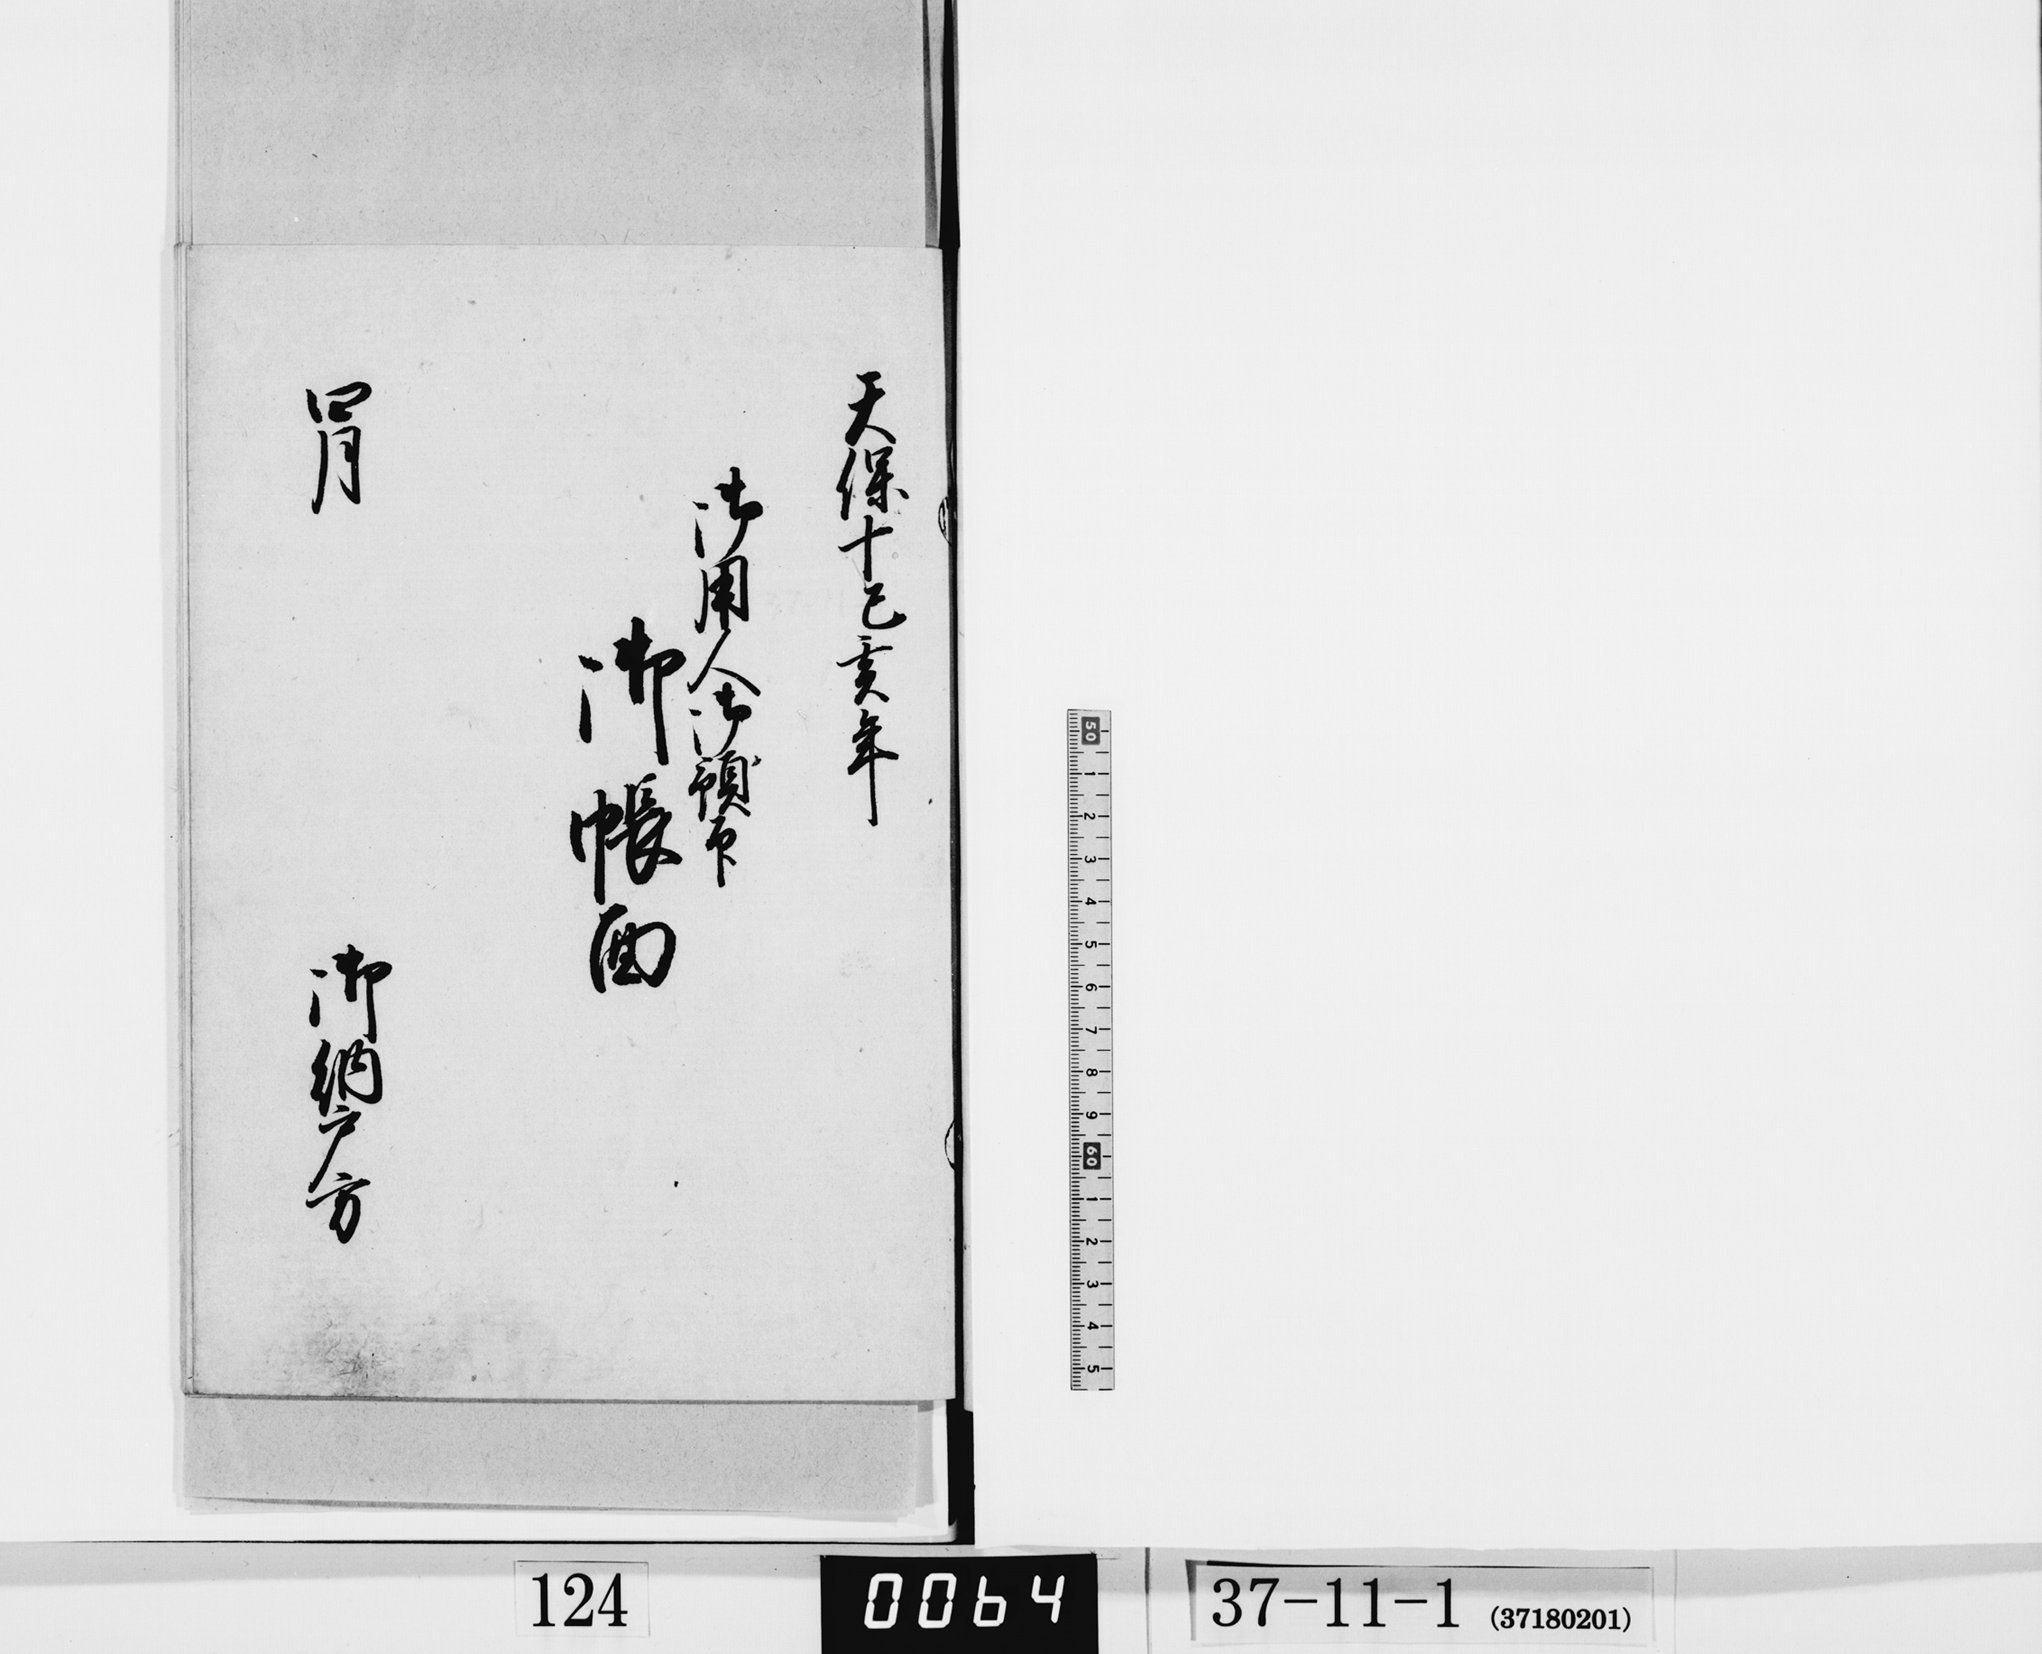 天保十己亥年
御用人御預印
御帳面
四月
御納戸方
50
1
2
3
4
5
6
7
8
9
60
1
2
3
4
5
124
0064
37-11-1 (37180201)